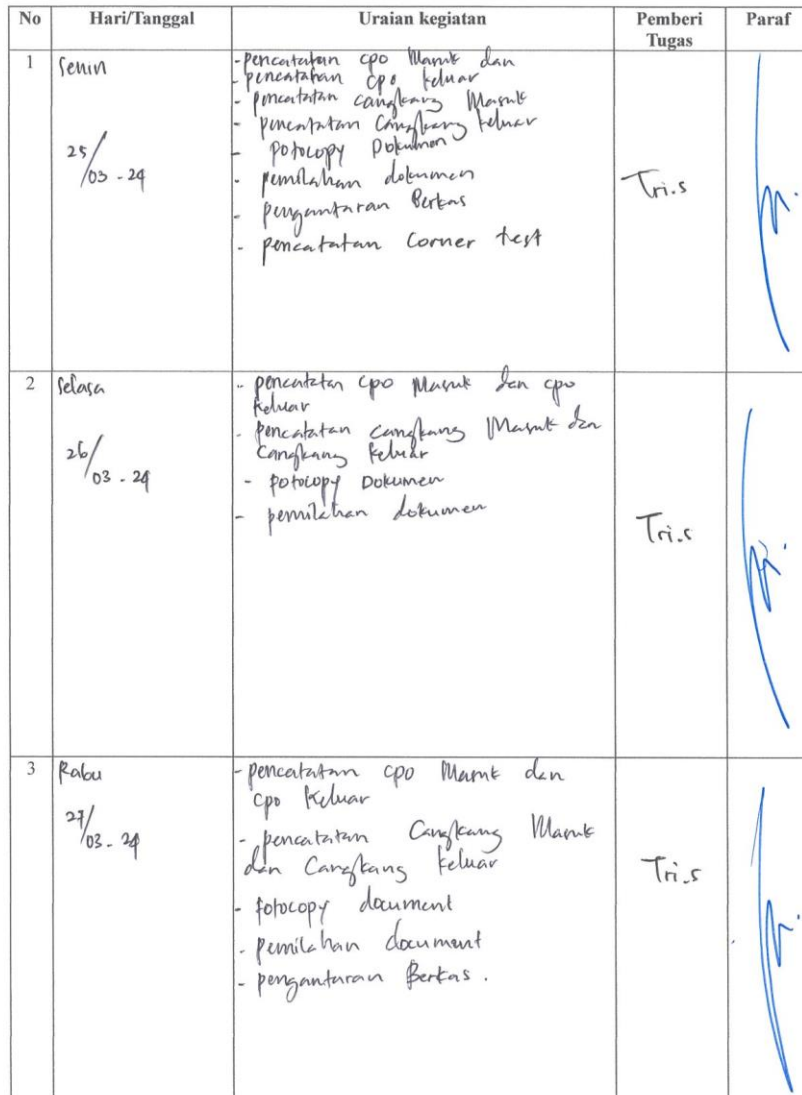 No Hari/Tanggal Uraian kegiatan Pemberi Tugas Paraf
1 Senin
25/03-24
- pencatatan cpo Masuk dan
- pencatatan cpo keluar
- pencatatan cangkang Masuk
- pencatatan Cangkang keluar
- potocopy Dokumen
- pemilahan dokumen
- pengantaran Berkas
- pencatatan Corner test
Tri.s
2 Selasa
26/03-24
- pencatatan cpo Masuk dan cpo
keluar
- pencatatan cangkang Masuk dan
Cangkang keluar
- potocopy Dokumen
- pemilahan dokumen
Tri.s
3 Rabu
27/03-24
- pencatatan cpo Masuk dan
cpo keluar
- pencatatan Cangkang Masuk
dan Cangkang keluar
- fotocopy document
- pemilahan document
- pengantaran Berkas.
Tri.s